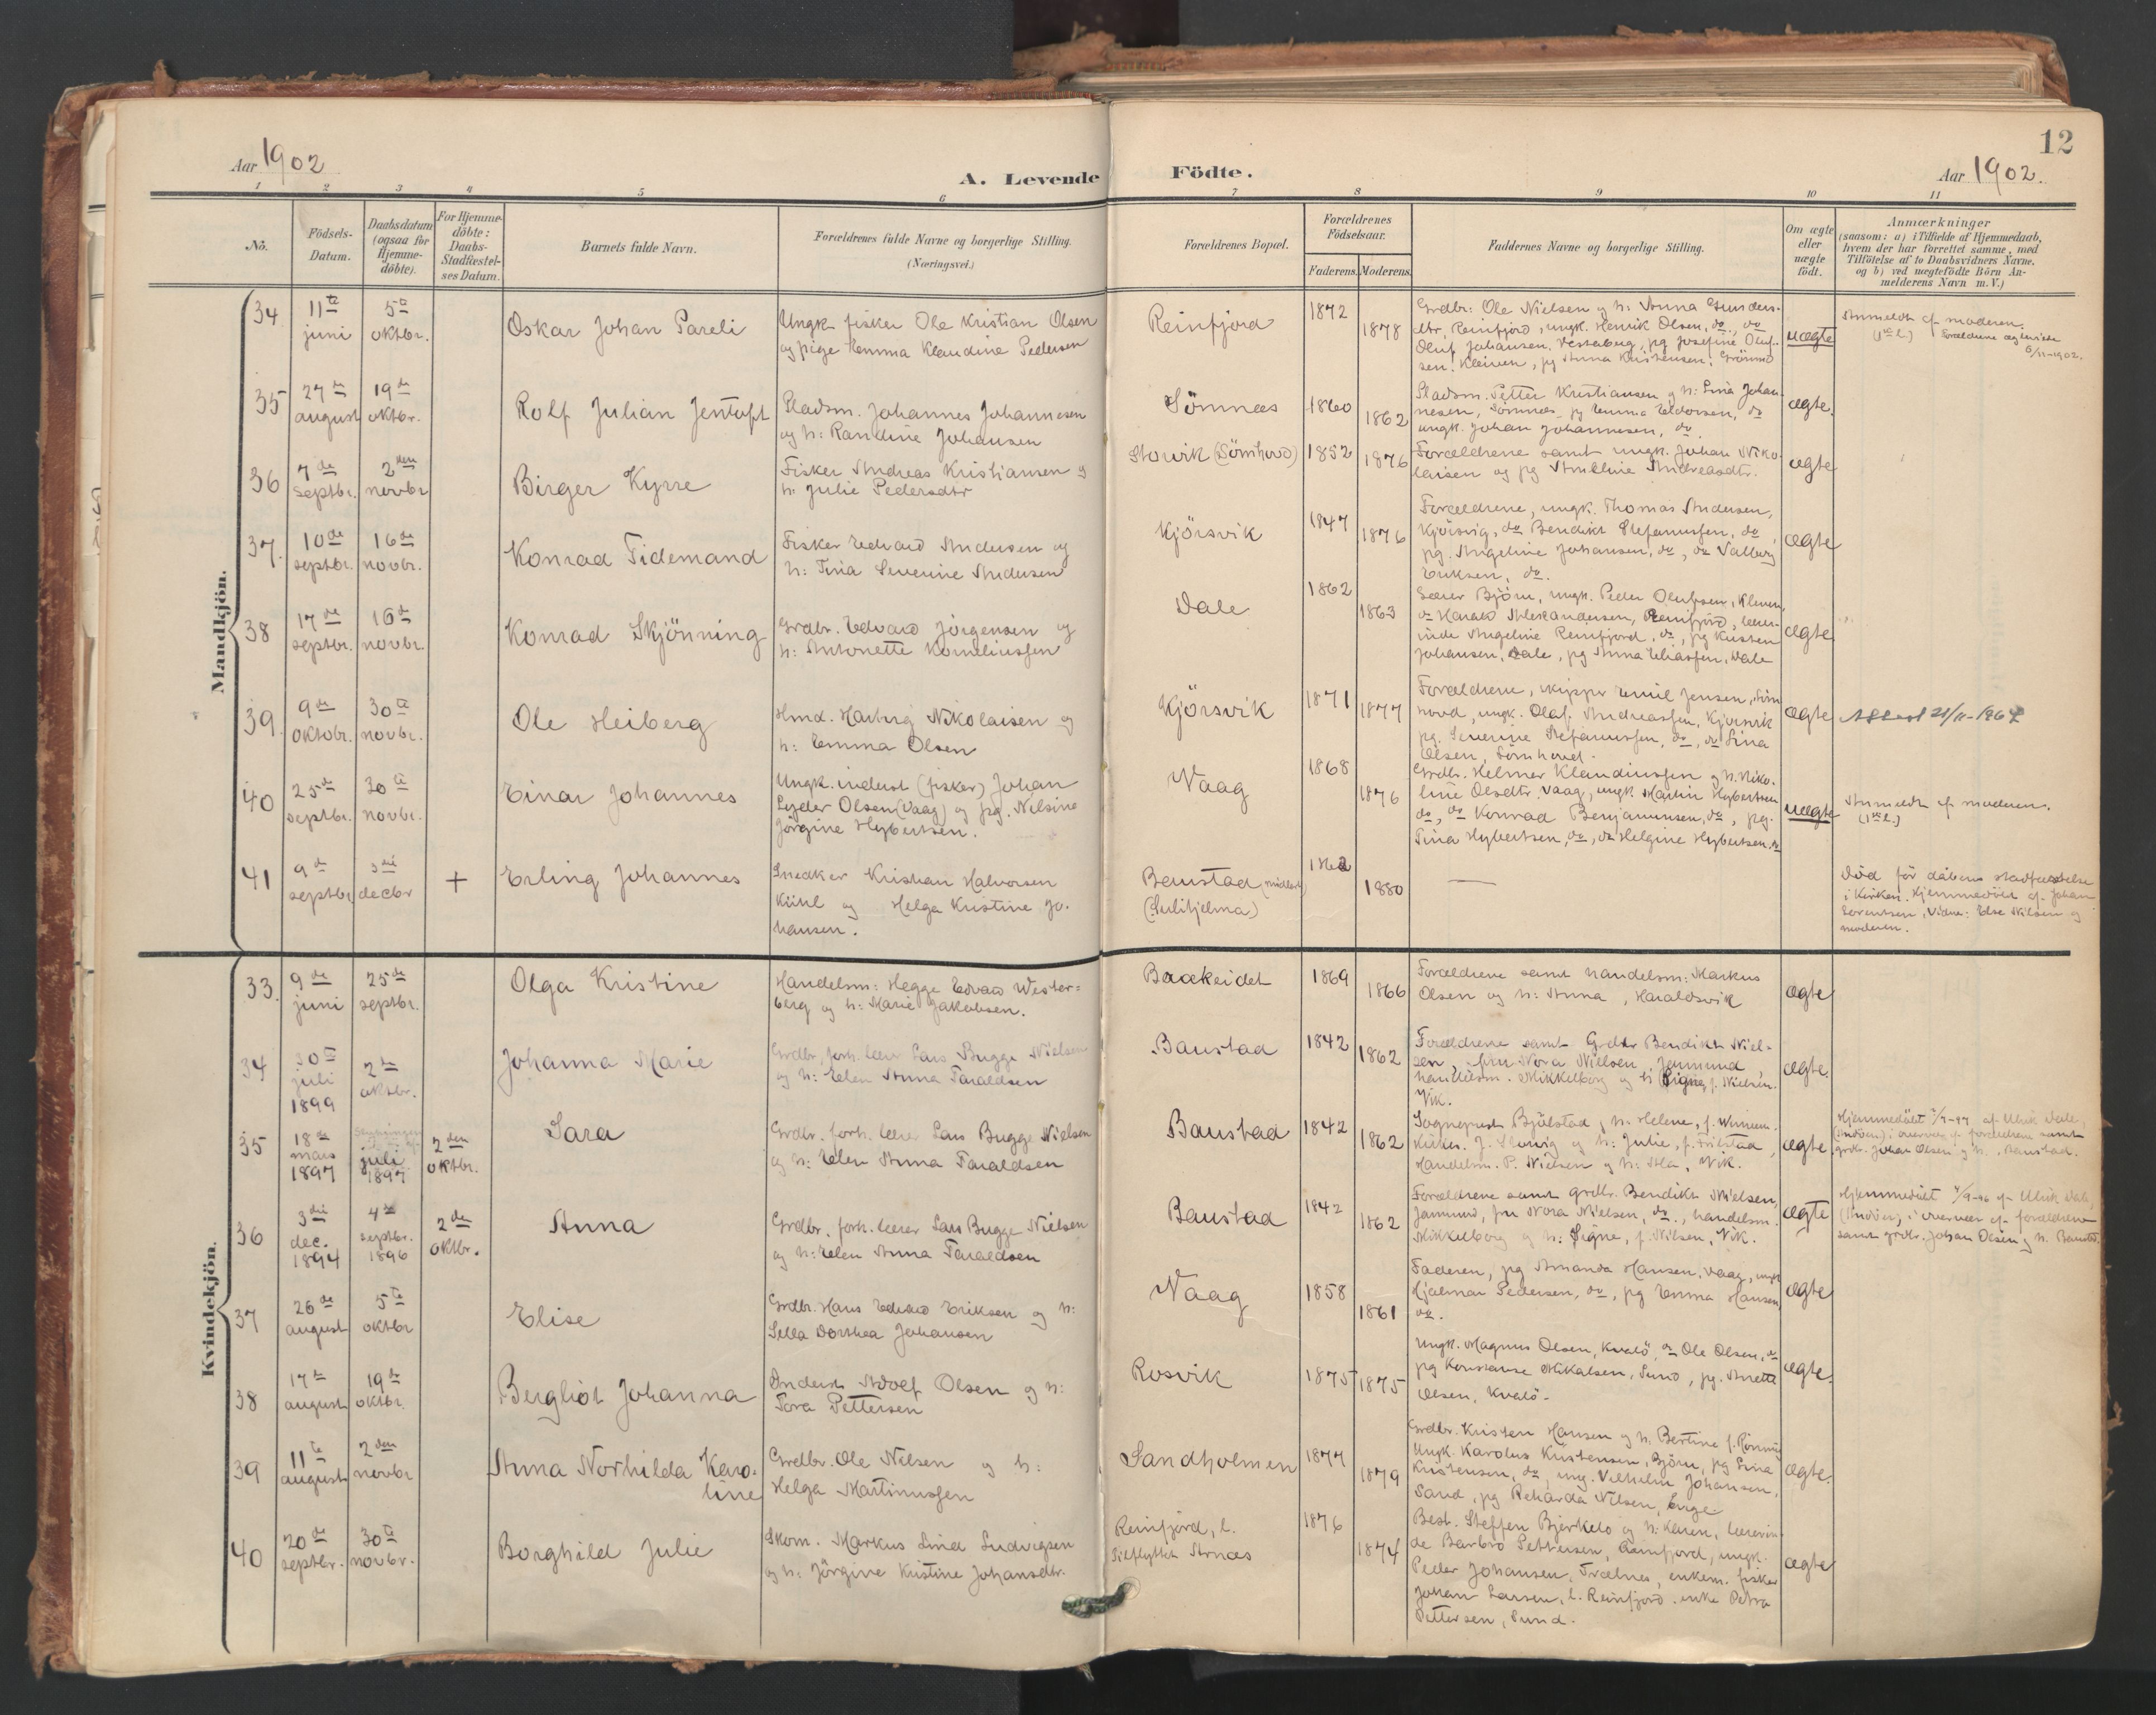 12
Aar 1902
A. Levende Födte.
Aar 1902.
1 2 3 4 5 6 7 8 9 10 11
No.
Födsels-
Datum.
Daabsdatum
(ogsaa for
Hjemme-
döbte).
For Hjemme-
döbte:
Daabs-
Stadfæstel-
ses Datum.
Barnets fulde Navn.
Forældrenes fulde Navne og borgerlige Stilling.
(Næringsvei.)
Forældrenes Bopæl.
Forældrenes
Födselsaar.
Faderens. Moderens.
Faddernes Navne og borgerlige Stilling.
Om ægte
eller
uægte
födt.
Anmærkninger
(saasom: a) i Tilfælde af Hjemmedaab,
hvem der har forrettet samme, med
Tilföielse af to Daabsvidners Navne,
og b) ved uægtefödte Börn An-
melderens Navn m. V.)
Mandkjön.
34
11te
juni
5te
oktbr.
Oskar Johan Pareli
Ungk. fisker Ole Kristian Olsen
og pige Emma Klaudine Pedersen
Reinfjord
1872
1878
Grdbr. Ole Nielsen og h: Anna Gunders-
dtr, Reinfjord, ungk. Henrik Olsen, do, do
Oluf Johansen, Vesterberg, pg Josefine Oluf-
sen, Kleiven, pg Anna Kristensen,
uægte
Anmeldt af moderen.
(1ste l.) Forældrene ægteviede
6/11-1902.
35
27de
august
19de
oktbr.
Rolf Julian Jentoft
Pladsm. Johannes Johannesen
og h: Randine Johansen
Sömnæs
1860
1862
Pladsm. Petter Kristiansen og h: Lina Johan-
nesen, Sömnæs, pg Emma Edvorsen, do
ungk. Johan Johannesen, do.
ægte.
36
7de
septbr.
2den
novbr
Birger Kyrre
Fisker Andreas Kristiansen og
h: Julie Pedersdtr
Storvik (Sörnhovd)
1852
1876
Forældrene samt ungk. Johan Niko-
laisen og pg Andreasdtr.
ægte
37.
10de
septbr.
16de
novbr.
Konrad Tidemand
Fisker Edvard Andersen og
h: Tina Severine Andersen
Kjörsvik
1847
1876
Forældrene, ungk. Thomas Andersen,
Kjörsvig, do Bendikt Stefanussen, do,
pg. Angeline Johansen, do, do Valborg
Eriksen, do.
ægte
38
17de
septbr.
16de
novbr.
Konrad Skjönning
Grdbr. Edvard Jörgensen og
h: Antonette Korneliussen
Dale
1862
1863
Lærer Björn, ungk. Peder Olufsen, Kleiven,
do Harald Aleksandersen, Reinfjord, lærer-
inde Angeline Reinfjord, do, pg Kristen
Johansen, Dale, pg Anna Eliassen, Dale
ægte
39
9de
oktobr.
30te
novbr.
Ole Heiberg
Hmd. Hartvig Nikolaisen og
h: Emma Olsen
Kjörsvik
1871
1877
Forældrene, skipper Emil Jensen, Sörn
hovd, ungk. Olaf Andreassen, Kjörsvik
pg. Severine Stefanussen, do, do Lina
Olsen, Sörnhovd.
ægte
Attest 21/11-1967
40
25de
septbr.
30te
novbr.
Einar Johannes
Ungk. inderst (fisker) Johan
Lyder Olsen (Vaag) og pg. Nilsine
Jörgine Hybertsen.
Vaag
1868
1876
Grdbr. Helmer Klaudiussen og h. Niko-
line Olsdtr. Vaag, ungk. Martin Hybertsen
do, do Konrad Benjaminsen, do, pg.
Tina Hybertsen, do, do Helgine Hybertsen, do
uægte
Anmeldt af moderen.
(1ste l.)
41
9de
septbr
3die
decbr
+
Erling Johannes
Snedker Kristian Halvorsen
Kühl og Helga Kristine Jo-
hansen.
Baustad (midlert.)
(Sulitjelma)
1862
1880
—
Död för dåbens stadfæstelse
i Kirken. Hjemmedöbt af Johan
Sörensen, Vidne: Else Nilsen og
moderen.
Kvindekjön.
33.
9de
juni
25de
septbr.
Olga Kristine
Handelsm: Hegge Edvard Wester-
berg og h: Marie Jakobsen.
Baakeidet
1869
1866
Forældrene samt handelsm: Markus
Olsen og h: Anna, Haraldsvik
ægte
34
30te
juli
1899
2den
oktbr.
Johanna Marie
Grdbr, forh. lærer Lars Bugge Nielsen
og h: Elen Anna Taraldsen
Baustad
1842
1862
Forældrene samt Grdbr Bendikt Niel-
sen, fru Nora Nielsen, Jammund,
handelsm. Mikkelborg og h: Signe, f. Nielsen.
Vik.
ægte.
35
18de
mars
1897
juli
1897
2den
oktbr.
Sara
Grdbr. forh. lærer Lars Bugge Nielsen
og h: Elen Anna Taraldsen
Baustad
1842
1862
Sogneprest Bjölstad og h: Helene, f.
J. og h: Julie, f.
Handelsm. P. Nielsen og h: Vik.
ægte
Hjemmedöbt af Ulrik Dale,
i overvær af forældrene samt
grdbr. Johan Olsen og h. Baustad.
36
3die
dec.
1894
4de
septbr.
1896
2den
oktbr.
Anna
Grdbr. forh. lærer Lars Bugge Nielsen
og h: Elen Anna Taraldsen
Baustad
1842
1862
Forældrene samt grdbr. Bendikt Nielsen,
Jammund, fru Nora Nielsen, do., handelsm.
Mikkelborg og h: Signe, f. Nilsen, Vik.
ægte
Hjemmedöbt 4/9-96 af Ulrik Dale,
i overvær af forældrene
samt grdbr. Johan Olsen og h. Baustad.
37
26de
august
5te
oktbr
Elise
Grdbr. Hans Edvard Eriksen og h:
Sella Dorthea Johansen
Vaag
1858
1861
Faderen, pg Amanda Hansen, Vaag, ungk
Hjalmar Pedersen, do, pg Emma Hansen,
do.
ægte
38
17de
august
19de
oktbr.
Bergliot Johanna
Inderst Adolf Olsen og h:
Tora Pettersen
Rosvik
1875
1875
Ungk. Magnus Olsen, Kvalö, do Ole Olsen, do
pg Konstanse Mikalsen, Sund, pg. Anette
Olsen, Kvalö.
ægte.
39
11te
august
2den
novbr
Anna Norhilda Karo-
line
Grdbr. Ole Nilsen og h:
Helga Martinussen
Sandholmen
1877
1879
Grdbr. Kristen Hansen og h: Bertine f. Rönning
Ungk. Karolus Kristensen, Björn, pg Lina
Kristensen, do, ung. Vilhelm Johansen,
Sand, pg Rekarda Nilsen,
ægte.
40
20de
septbr.
30te
novbr.
Borghild Julie
Skom. Markus Lind Ludvigsen
og h: Jörgine Kristine Johansdtr.
Reinfjord, l.
Tilflyttet Arnæs
1876
1874
Best. Steffen Bjerkelo og h: Karen, lærerin
de Barbro Pettersen, Reinfjord, ungk.
Peder Johansen, Trælnes, enkem. fisker
Johan Larsen, l. Reinfjord. enke Petra
Pettersen, Sund.
ægte